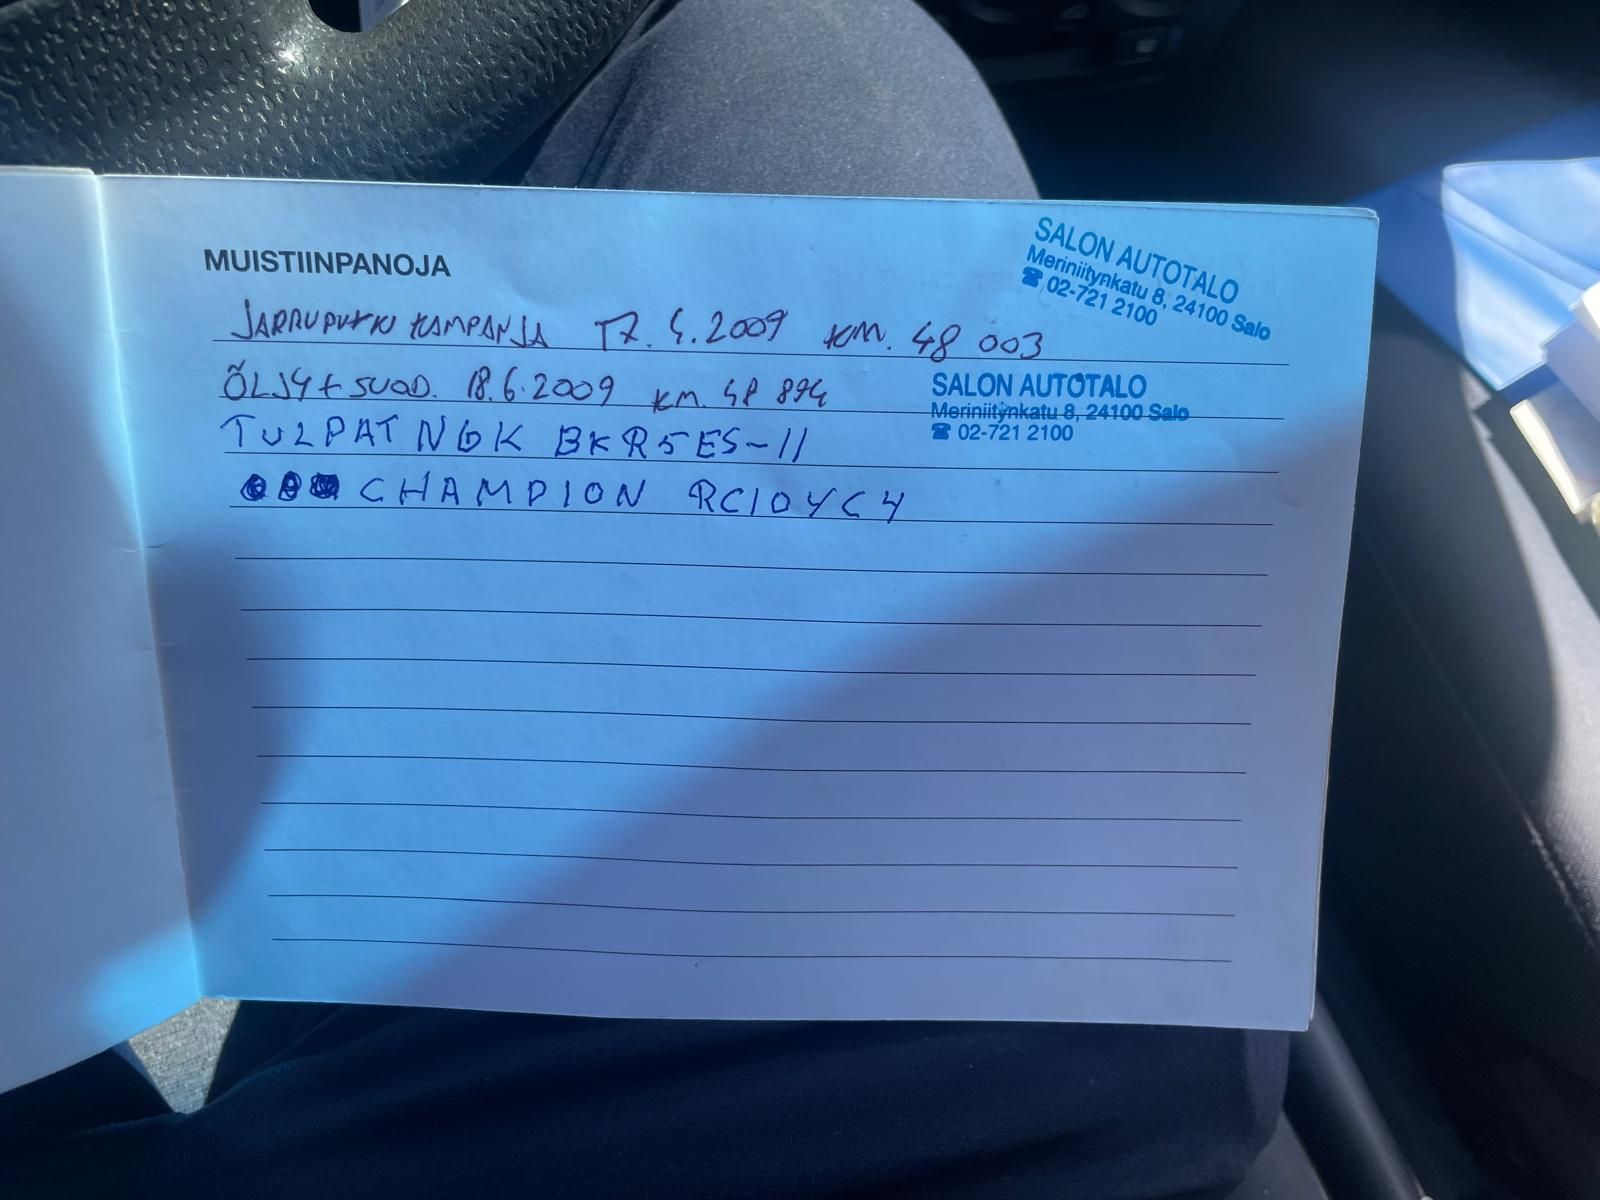 MUISTIINPANOJA
SALON AUTOTALO
Meriniitynkatu 8, 24100 Salo
☎ 02-721 2100
JARRUPUTKI KAMPANJA 17.4.2009 KM. 48 003
ÖLJY + SUOD. 18.6.2009 KM. 48 894
SALON AUTOTALO
Meriniitynkatu 8, 24100 Salo
☎ 02-721 2100
TULPAT NGK BKR5ES-11
CHAMPION RC10YC4